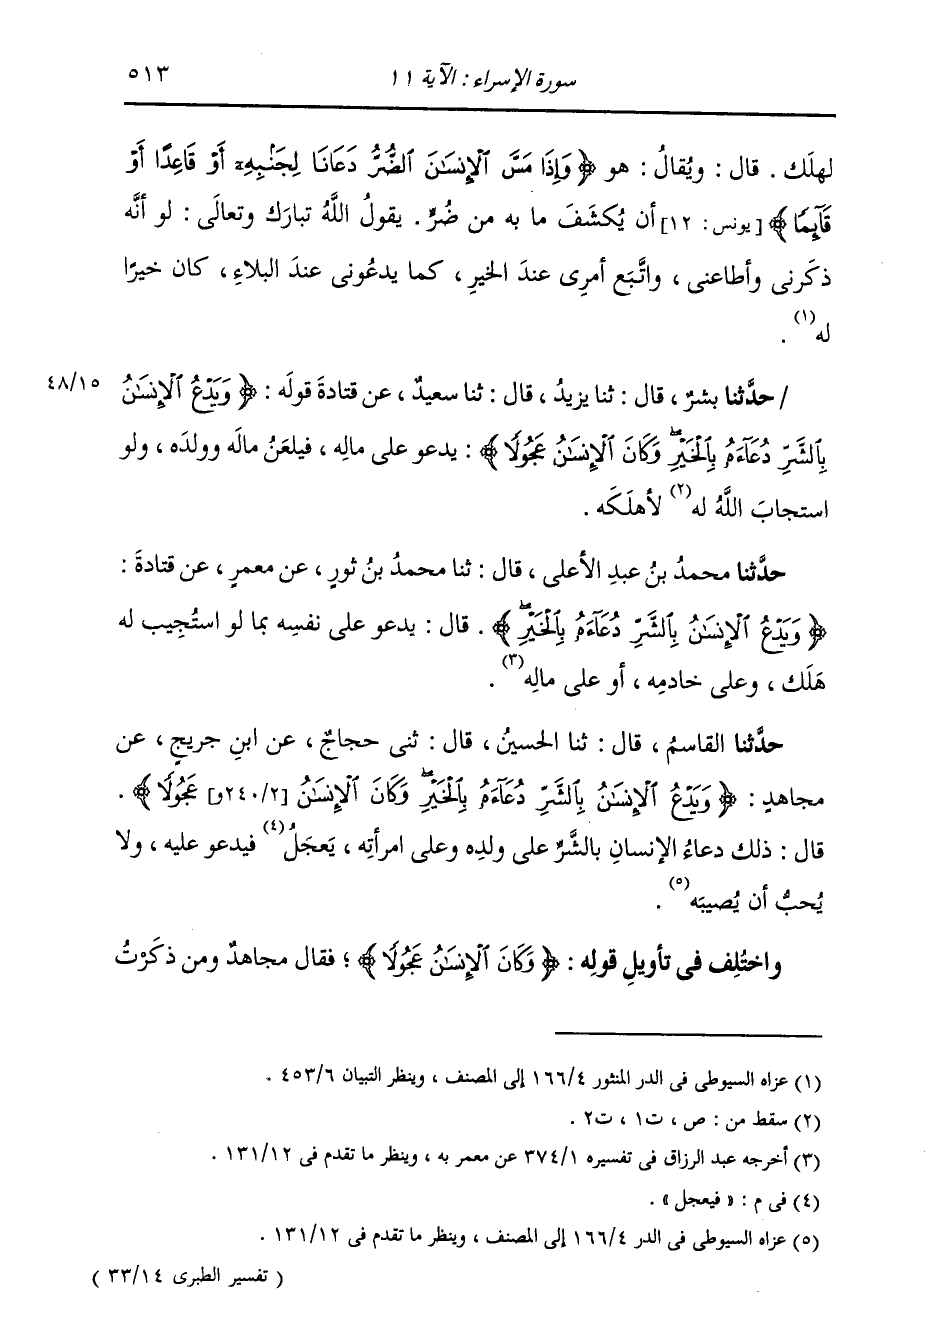 سورة الإسراء : الآية ١١
٥١٣
لهلَك . قال : ويُقالُ : هو ﴿ وَإِذَا مَسَّ ٱلْإِنسَٰنَ ٱلضُّرُّ دَعَانَا لِجَنۢبِهِۦٓ أَوْ قَاعِدًا أَوْ
قَآئِمًا ﴾ [يونس : ١٢] أن يُكشَفَ ما به من ضُرٍّ . يقولُ اللَّهُ تبارَك وتعالَى : لو أنَّه
ذكَرنى وأطاعنى ، واتَّبَع أمرِى عندَ الخيرِ ، كما يدعُونى عندَ البلاءِ ، كان خيرًا
له(١) .
/ حدَّثنا بشرٌ ، قال : ثنا يزيدُ ، قال : ثنا سعيدٌ ، عن قتادةَ قولَه : ﴿ وَيَدْعُ ٱلْإِنسَٰنُ
٤٨/١٥
بِٱلشَّرِّ دُعَآءَهُۥ بِٱلْخَيْرِۖ وَكَانَ ٱلْإِنسَٰنُ عَجُولًا ﴾ : يدعو على مالِه ، فيلعَنُ مالَه وولدَه ، ولو
استجابَ اللَّهُ له(٢) لأهلَكَه .
حدَّثنا محمدُ بنُ عبدِ الأعلى ، قال : ثنا محمدُ بنُ ثورٍ ، عن معمرٍ ، عن قتادةَ :
﴿ وَيَدْعُ ٱلْإِنسَٰنُ بِٱلشَّرِّ دُعَآءَهُۥ بِٱلْخَيْرِۖ ﴾ . قال : يدعو على نفسِه بما لو استُجِيب له
هَلَك ، وعلى خادمِه ، أو على مالِه(٣) .
حدَّثنا القاسمُ ، قال : ثنا الحسينُ ، قال : ثنى حجاجٌ ، عن ابنِ جريجٍ ، عن
مجاهدٍ : ﴿ وَيَدْعُ ٱلْإِنسَٰنُ بِٱلشَّرِّ دُعَآءَهُۥ بِٱلْخَيْرِۖ وَكَانَ ٱلْإِنسَٰنُ [٢٤٠/٢و] عَجُولًا ﴾ .
قال : ذلك دعاءُ الإنسانِ بالشَّرِّ على ولدِه وعلى امرأتِه ، يَعجَلُ(٤) فيدعو عليه ، ولا
يُحبُّ أن يُصيبَه(٥) .
واختُلِف فى تأويلِ قولِه : ﴿ وَكَانَ ٱلْإِنسَٰنُ عَجُولًا ﴾ ؛ فقال مجاهدٌ ومن ذكَرْتُ
(١) عزاه السيوطى فى الدر المنثور ١٦٦/٤ إلى المصنف ، وينظر التبيان ٤٥٣/٦ .
(٢) سقط من : ص ، ت١ ، ت٢ .
(٣) أخرجه عبد الرزاق فى تفسيره ٣٧٤/١ عن معمر به ، وينظر ما تقدم فى ١٣١/١٢ .
(٤) فى م : « فيعجل » .
(٥) عزاه السيوطى فى الدر ١٦٦/٤ إلى المصنف ، وينظر ما تقدم فى ١٣١/١٢ .
( تفسير الطبرى ٣٣/١٤ )